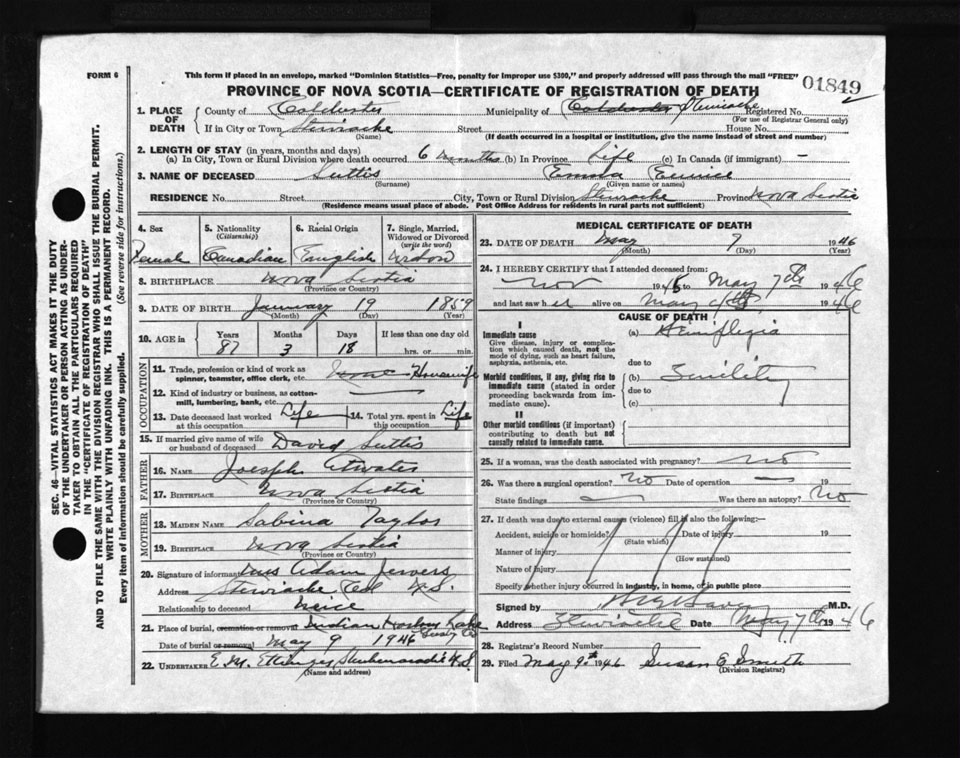 FORM 6
This form if placed in an envelope, marked "Dominion Statistics—Free, penalty for improper use $300," and properly addressed will pass through the mail "FREE"
01849
PROVINCE OF NOVA SCOTIA—CERTIFICATE OF REGISTRATION OF DEATH
1. PLACE OF DEATH
County of Colchester Municipality of Colchester Stewiacke Registered No.
(For use of Registrar General only)
If in City or Town Stewiacke Street House No.
(Name) (If death occurred in a hospital or institution, give the name instead of street and number)
2. LENGTH OF STAY (in years, months and days)
(a) In City, Town or Rural Division where death occurred 6 months (b) In Province Life (c) In Canada (if immigrant) —
3. NAME OF DECEASED Suttis Emma Eunice
(Surname) (Given name or names)
RESIDENCE No. Street City, Town or Rural Division Stewiacke Province Nova Scotia
(Residence means usual place of abode. Post Office Address for residents in rural parts not sufficient)
4. Sex 5. Nationality 6. Racial Origin 7. Single, Married, Widowed or Divorced
(Citizenship) (write the word)
Female Canadian English Widow
8. BIRTHPLACE Nova Scotia
(Province or Country)
9. DATE OF BIRTH January 19 1859
(Month) (Day) (Year)
10. AGE in Years Months Days If less than one day old
87 3 18 hrs. or min.
OCCUPATION
11. Trade, profession or kind of work as spinner, teamster, office clerk, etc. Housewife
12. Kind of industry or business, as cotton-mill, lumbering, bank, etc.
13. Date deceased last worked at this occupation Life 14. Total yrs. spent in this occupation Life
15. If married give name of wife or husband of deceased David Suttis
FATHER
16. NAME Joesph Atwater
17. BIRTHPLACE Nova Scotia
(Province or Country)
MOTHER
18. MAIDEN NAME Sabina Taylor
19. BIRTHPLACE Nova Scotia
(Province or Country)
20. Signature of informant Mrs Adam Jewers
Address Stewiacke Col N.S.
Relationship to deceased Neice
21. Place of burial, cremation or removal Indian Harbor Lake
Date of burial or removal May 9 1946
22. UNDERTAKER E.M. Ettinger N.S.
(Name and address)
MEDICAL CERTIFICATE OF DEATH
23. DATE OF DEATH May 7 1946
(Month) (Day) (Year)
24. I HEREBY CERTIFY that I attended deceased from:
Nov 1945 to May 7th 1946
and last saw her alive on May 1946
CAUSE OF DEATH
I
Immediate cause
Give disease, injury or complication which caused death, not the mode of dying, such as heart failure, asphyxia, asthenia, etc.
(a) Hemiplegia
due to
Morbid conditions, if any, giving rise to immediate cause (stated in order proceeding backwards from immediate cause).
(b) Senility
due to
(c)
II
Other morbid conditions (if important) contributing to death but not causally related to immediate cause.
25. If a woman, was the death associated with pregnancy? No
26. Was there a surgical operation? No Date of operation —
State findings — Was there an autopsy? No
27. If death was due to external causes (violence) fill in also the following:—
Accident, suicide or homicide? Date of injury 19
(State which)
Manner of injury
(How sustained)
Nature of injury
Specify whether injury occurred in industry, in home, or in public place
Signed by M.D.
Address Stewiacke Date May 7th 1946
28. Registrar's Record Number
29. Filed May 9th 1946 Susan E Smith
(Division Registrar)
SEC. 46—VITAL STATISTICS ACT MAKES IT THE DUTY OF THE UNDERTAKER OR PERSON ACTING AS UNDERTAKER TO OBTAIN ALL THE PARTICULARS REQUIRED IN THE "CERTIFICATE OF REGISTRATION OF DEATH" AND TO FILE THE SAME WITH THE DIVISION REGISTRAR WHO SHALL ISSUE THE BURIAL PERMIT.
WRITE PLAINLY WITH UNFADING INK. THIS IS A PERMANENT RECORD.
Every item of information should be carefully supplied. (See reverse side for instructions.)